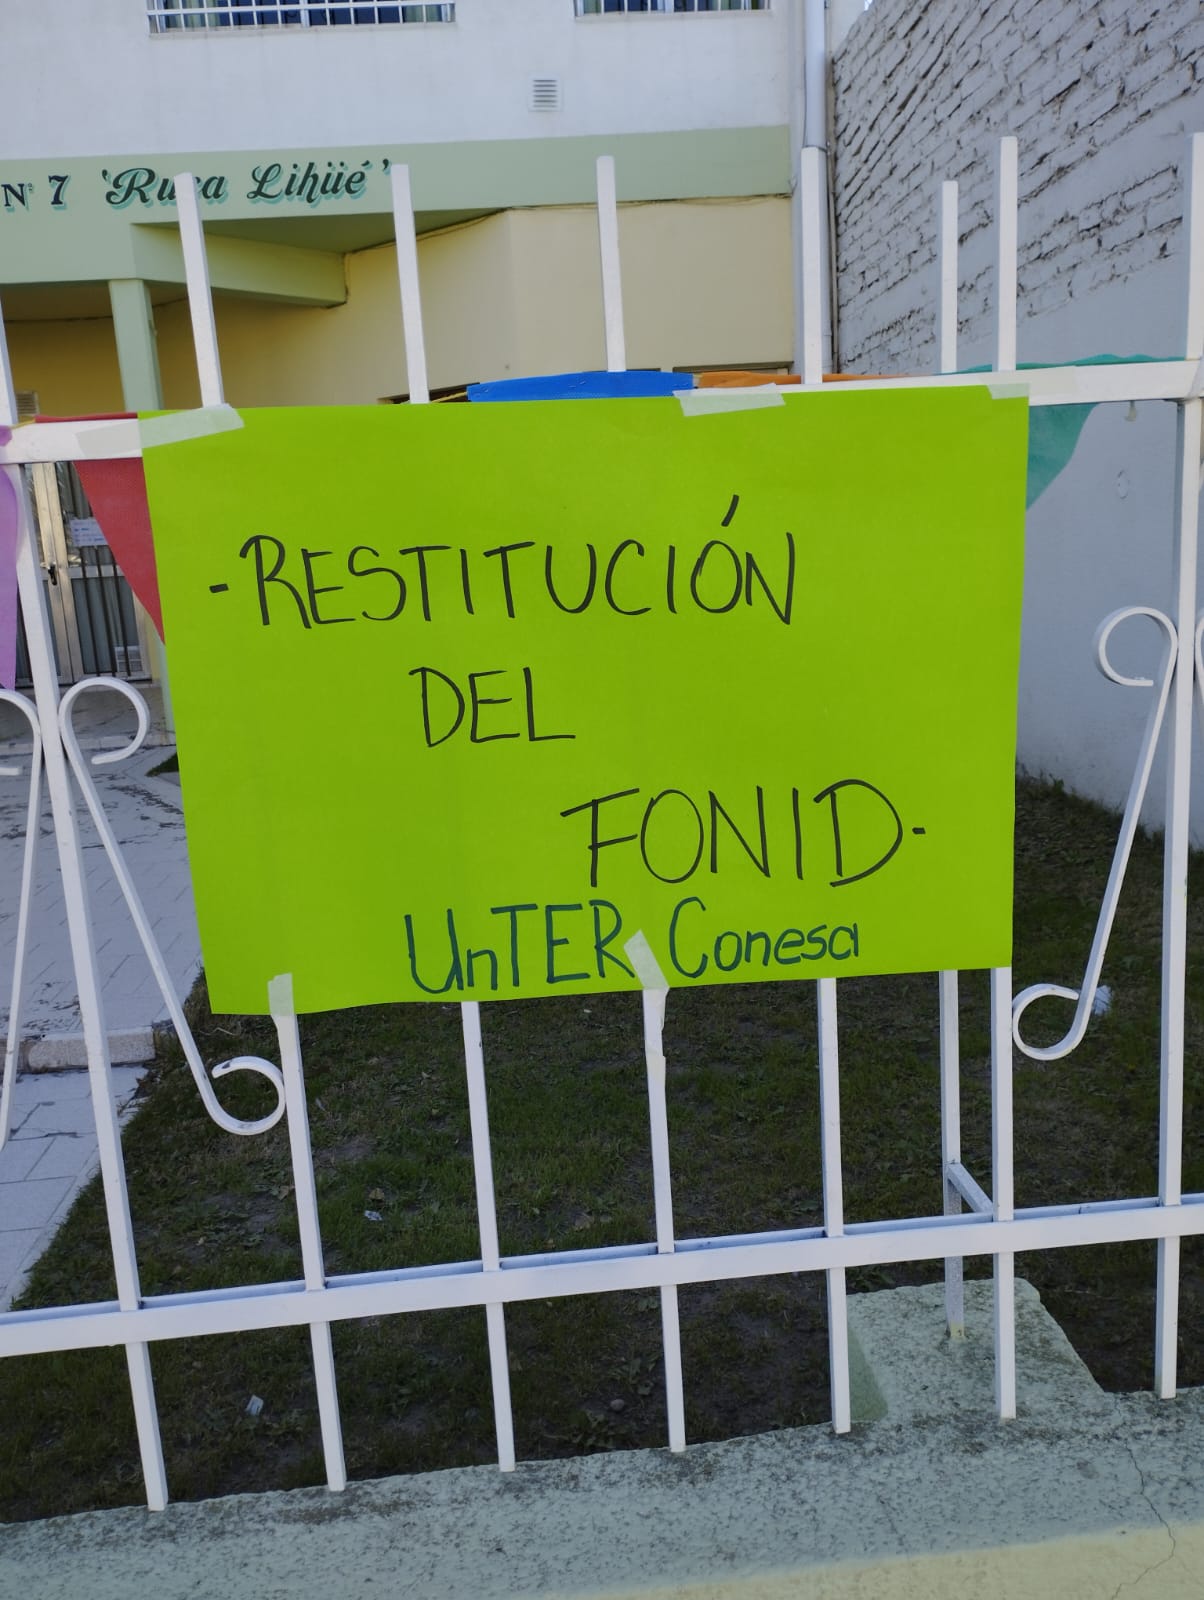 Nº 7 'Ruca Lihüé'
-RESTITUCIÓN
DEL
FONID-
UnTER Conesa